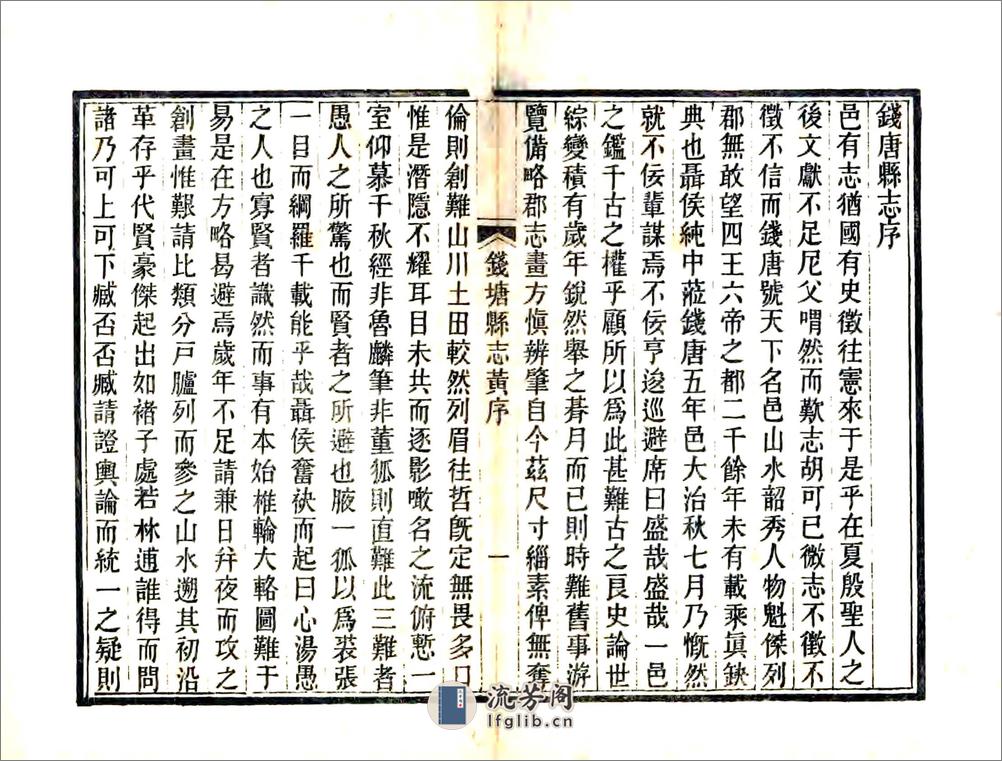 錢唐縣志序
邑有志猶國有史徵往憲來于是乎在夏殷聖人之
後文獻不足尼父喟然而歎志胡可已微志不徵不
徵不信而錢唐號天下名邑山水韶秀人物魁傑列
郡無敢望四王六帝之都二千餘年未有載乘眞缺
典也聶侯純中蒞錢唐五年邑大治秋七月乃慨然
就不佞輩謀焉不佞亨逡巡避席曰盛哉盛哉一邑
之鑑千古之權乎顧所以爲此甚難古之良史論世
綜變積有歲年銳然舉之朞月而已則時難舊事游
覽備略郡志畫方愼辨肇自今茲尺寸緇素俾無奪
錢塘縣志黃序
一
倫則創難山川土田較然列眉往哲旣定無畏多口
惟是潛隱不耀耳目未共而逐影噉名之流俯慙一
室仰慕千秋經非魯麟筆非董狐則直難此三難者
愚人之所驚也而賢者之所避也腋一狐以爲裘張
一目而綱羅千載能乎哉聶侯奮袂而起曰心湯愚
之人也寡賢者識然而事有本始椎輪大輅圖難于
易是在方略曷避焉歲年不足請兼日幷夜而攻之
創畫惟艱請比類分戶臚列而參之山水遡其初沿
革存乎代賢豪傑起出如褚子處若林逋誰得而問
諸乃可上可下臧否否臧請證輿論而統一之疑則
流芳阁
lfglib.cn